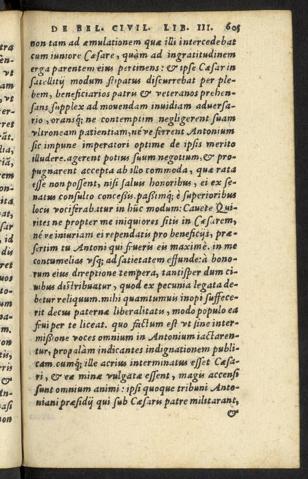 DE BEL. CIVIL. LIB. III. 605
non tam ad æmulationem quæ illi intercedebat
cum iuniore Cæsare, quàm ad ingratitudinem
erga parentem eius pertinens: & ipse Cæsar in
satellitũ modum stipatus discurrebat per ple-
bem, beneficiarios patris & veteranos prehen-
sans supplex ad mouendam inuidiam aduersa-
rio, oransq; ne contemptim negligerent suam
vltroneam patientiam, né ve ferrent Antonium
sic impune imperatori optime de ipsis merito
illudere. agerent potius suum negotium, & pro-
pugnarent accepta ab illo commoda, qua rata
esse non possent, nisi saluis honoribus, ei ex se-
natus consulto concessis. paßimq; è superioribus
locis vociferabatur in hũc modum: Cauete Qui-
rites ne propter me iniquiores sitis in Cæsarem,
né re iniuriam ei rependatis pro beneficijs, præ-
sertim tu Antoni qui fueris ei maximè. in me
contumelias vsq; ad satietatem effunde: à bono-
rum eius direptione tempera, tantisper dum ci-
uibus distribuatur, quod ex pecunia legata de-
betur reliquum. mihi quamtumuis inopi suffece-
rit decus paternæ liberalitatis, modo populo ea
frui per te liceat. quo factum est vt sine inter-
mißione voces omnium in Antonium iactaren-
tur, propalàm indicantes indignationem publi-
cam. cumq; ille acrius interminatus esset Cæsa-
ri, & eæ minæ vulgatæ essent, magis accensi
sunt omnium animi: ipsi quoque tribuni Anto-
niani præsidij qui sub Cæsaris patre militarant,
&